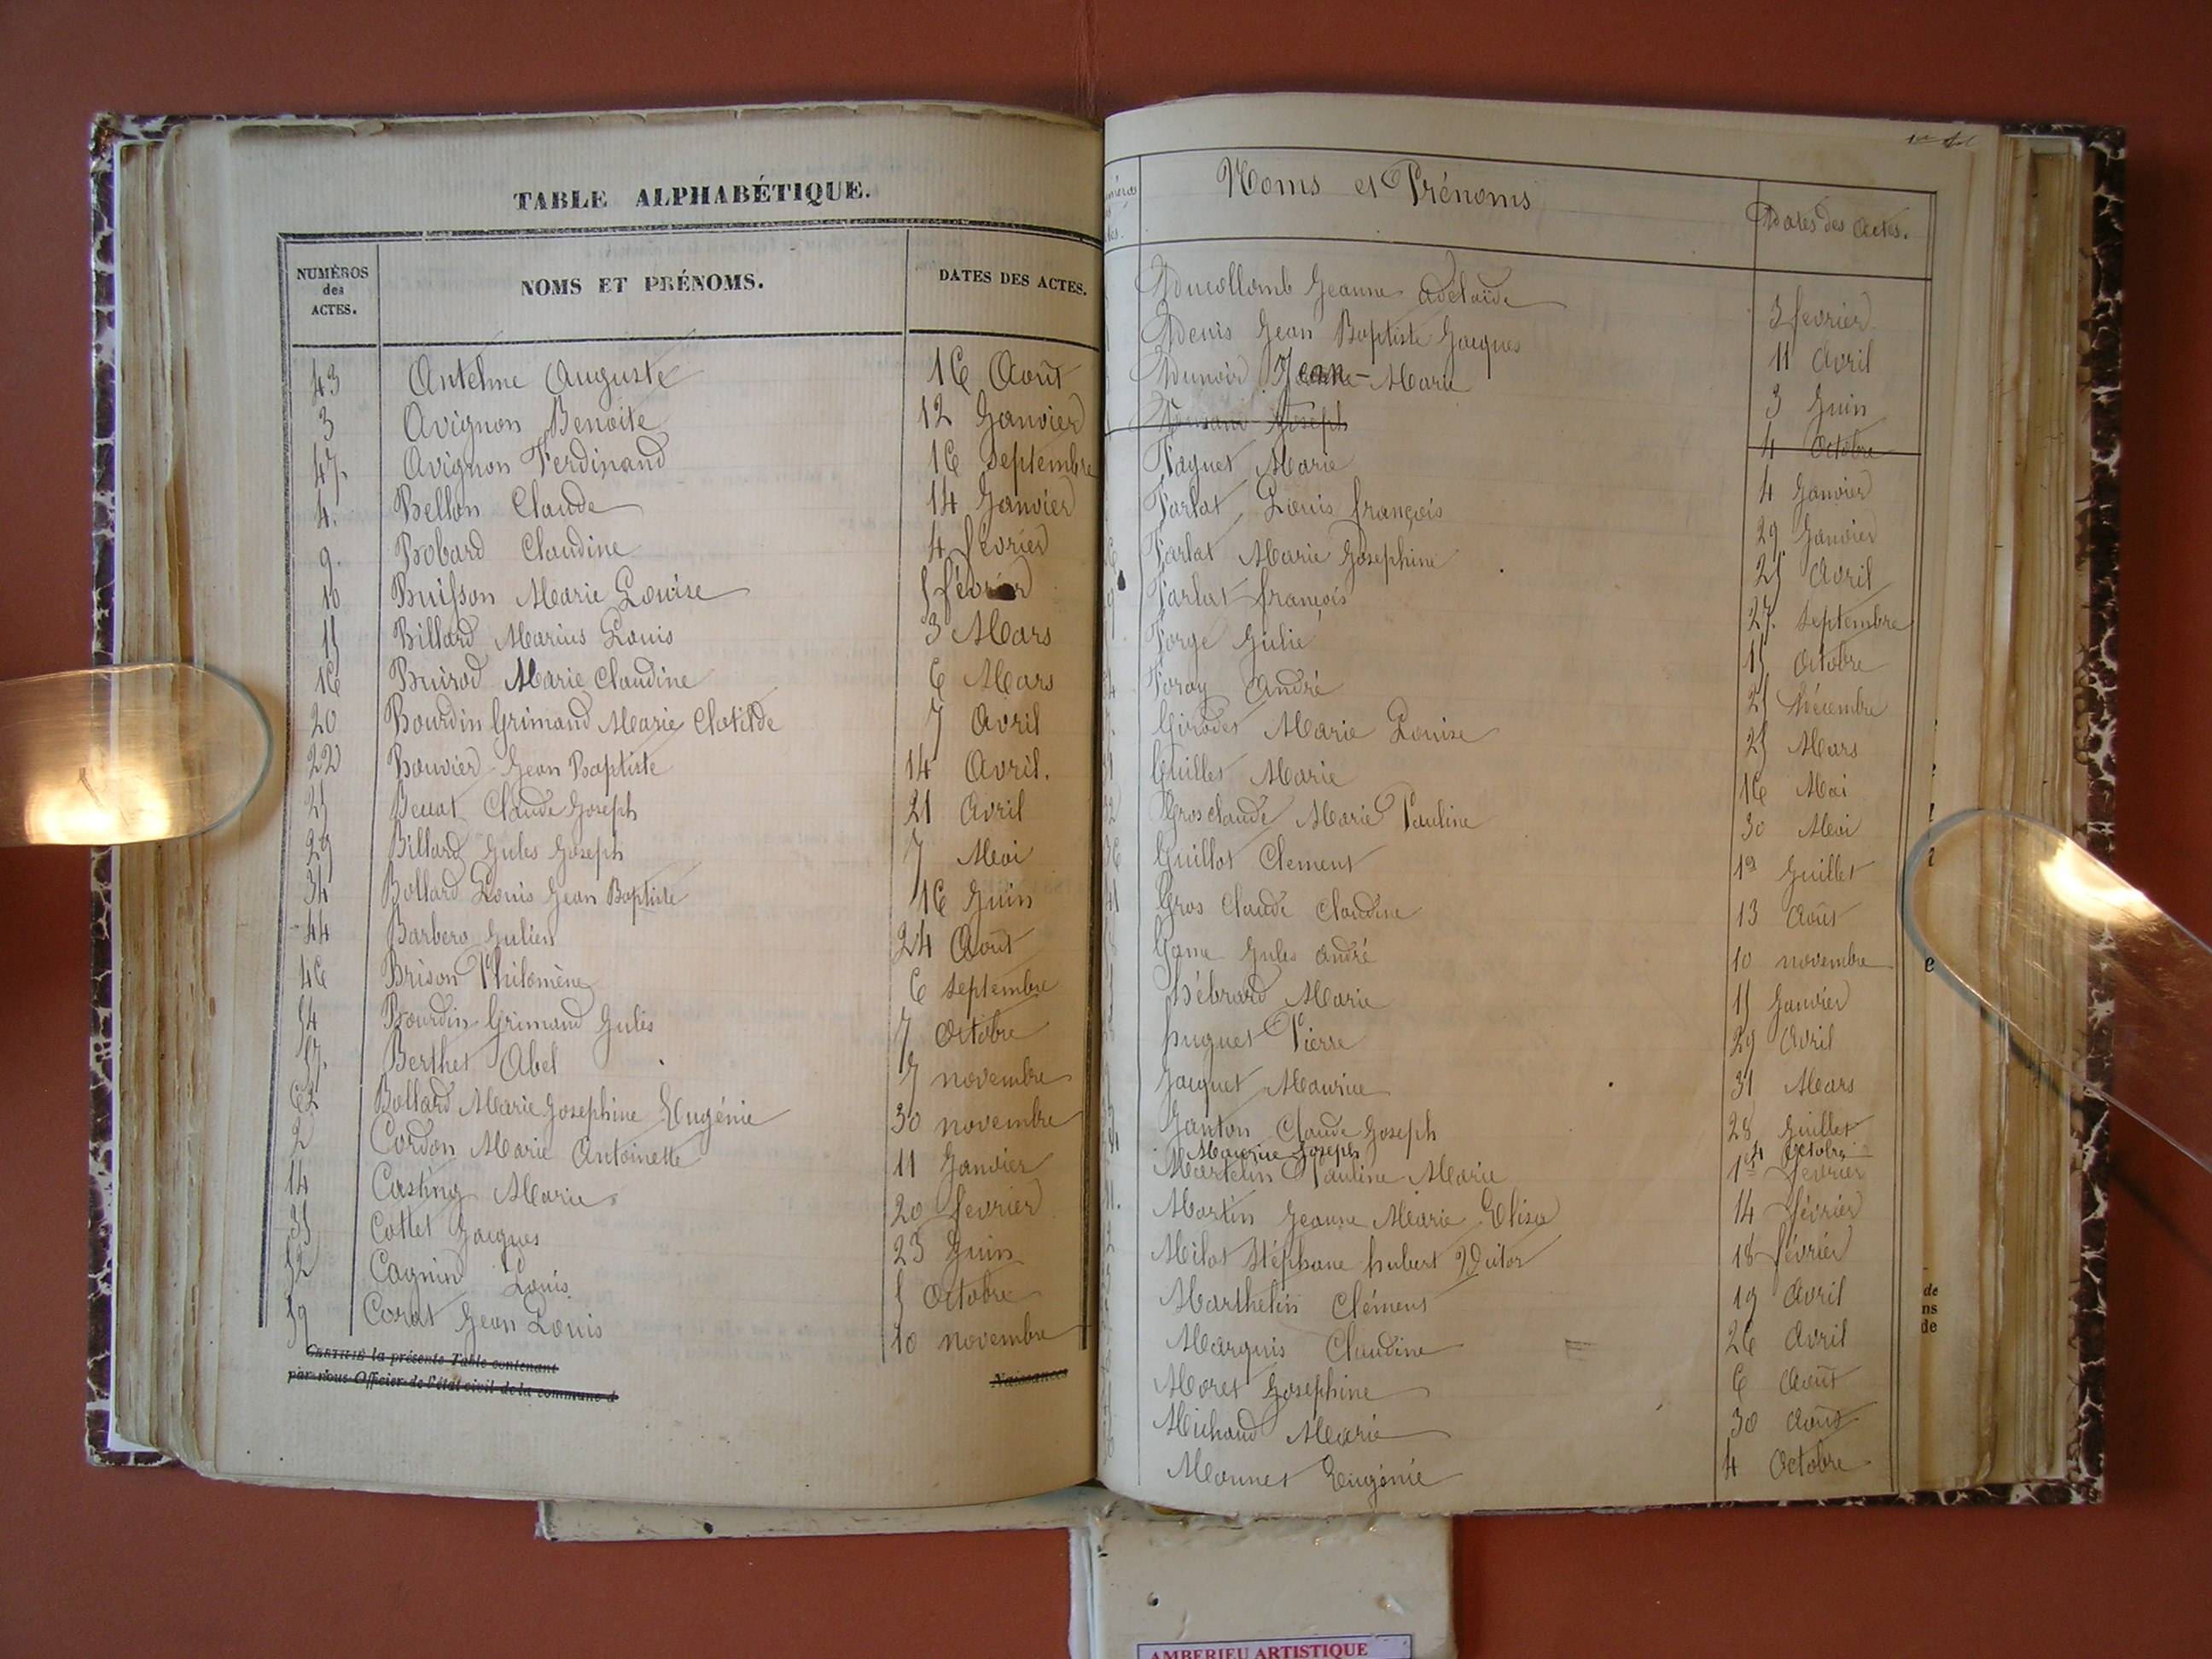 TABLE ALPHABÉTIQUE.
NUMÉROS des ACTES. NOMS ET PRÉNOMS. DATES DES ACTES.
43 Antelme Auguste 16 Août
3 Avignon Benoite 12 Janvier
47. Avignon Ferdinand 16 Septembre
4. Bellon Claude 14 Janvier
9. Bobard Claudine 4 février
10 Buisson Marie Louise 5 février
15 Billard Marius Louis 3 Mars
16 Buirod Marie Claudine 6 Mars
20 Bourdin Grimaud Marie Clotilde 7 Avril
22 Bouvier Jean Baptiste 14 Avril.
25 Claude Joseph 21 Avril
29 Billard Jules Joseph 7 Mai
34 Bollard Louis Jean Baptiste 16 Juin
44 Barbero Julien 24 Août
46 Brison Philomène 6 Septembre
54 Bourdin Grimaud Jules 7 Octobre
57. Berthet Abel 7 novembre
62 Bollard Marie Josephine Eugénie 30 novembre
2 Cordon Marie Antoinette 11 Janvier
14 Casting Marie 20 février
35 Cottet Jacques 23 Juin
52 Cagnin Louis 5 Octobre
59 Corat Jean Louis 10 novembre
CERTIFIÉ la présente Table contenant Naissances
par nous Officier de l'état civil de la commune d
Noms et Prénoms Dates des Actes.
Ducollomb Jeanne Adelaïde 3 fevrier
Denis Jean Baptiste Jacques 11 Avril
Dunoir Jean-Marie 3 Juin
Joseph 4 Octobre
Faguet Marie 4 Janvier
Farlat Louis françois 29 Janvier
Farlat Marie Josephine 25 Avril
Farlat françois 27. Septembre
Forge Julie 15 Octobre
Foray André 25 Décembre
Girodet Marie Louise 25 Mars
31 Guillet Marie 16 Mai
32 Grosclaude Marie Pauline 30 Mai
36 Guillot Clement 1er Juillet
41 Gros Claude Claudine 13 Août
Game Jules André 10 novembre
hébrard Marie 15 Janvier
huguet Pierre 29 Avril
Jacquet Maurice 31 Mars
Janton Claude Joseph 28 Juillet
Maurice Joseph 4 Octobre
Martelin Pauline Marie 1er fevrier
11. Martin Jeanne Marie Elisa 14 février
Milot Stéphane hubert Victor 18 février
Marthelin Clément 19 Avril
Marquis Claudine 26 Avril
Moret Josephine 6 Août
Michaud Marie 30 Août
Monnet Eugénie 4 Octobre
de
ns
de
AMBERIEU ARTISTIQUE